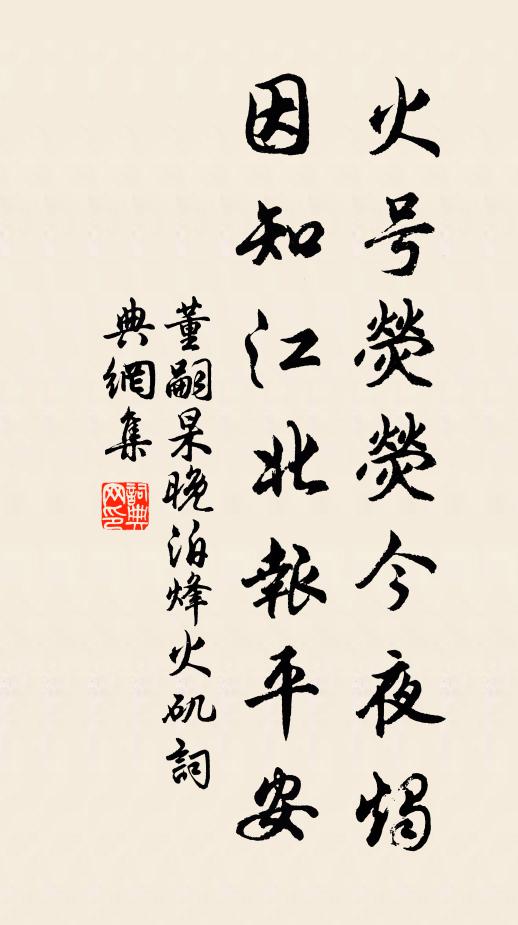 火号熒熒今夜燭
因知江北報平安
董嗣杲晚泊烽火矶詞
典網集
詞典
网印